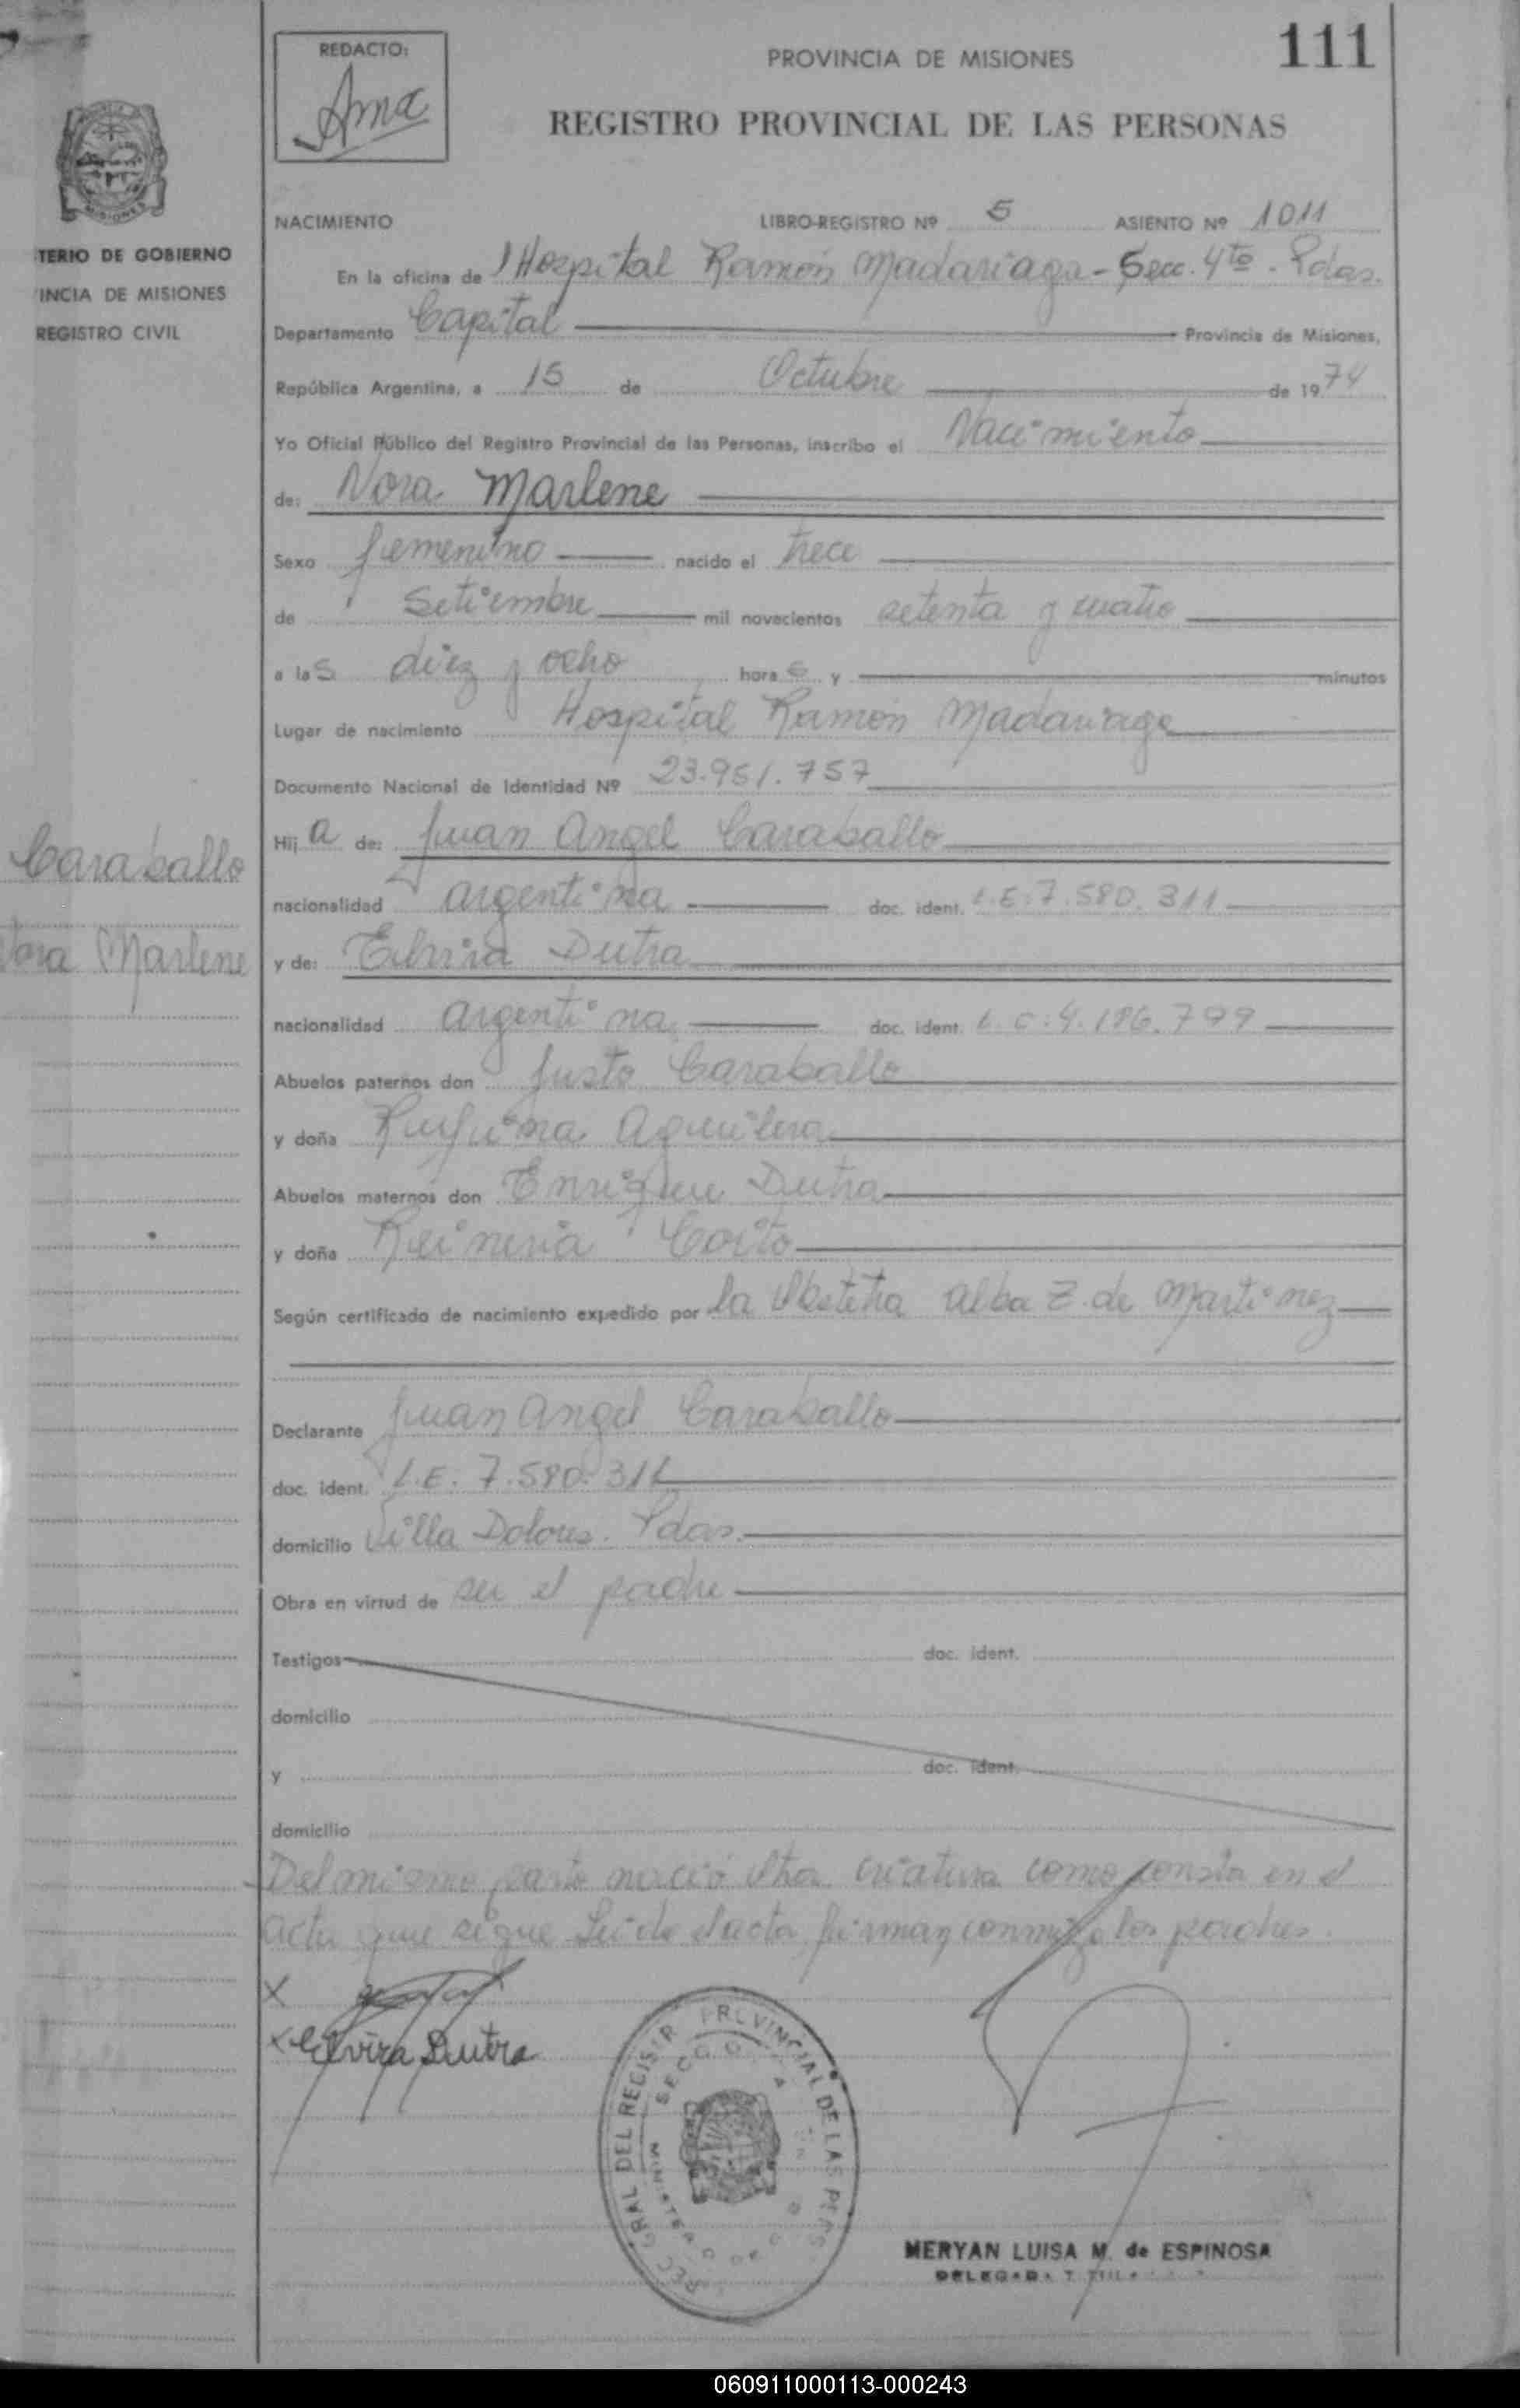 111
REDACTO:
PROVINCIA DE MISIONES
REGISTRO PROVINCIAL DE LAS PERSONAS
MISIONES
TERIO DE GOBIERNO
INCIA DE MISIONES
REGISTRO CIVIL
NACIMIENTO LIBRO-REGISTRO Nº 5 ASIENTO Nº 1011
En la oficina de Hospital Ramón Madariaga - Secc. 4ta. Pdas.
Departamento Capital Provincia de Misiones,
República Argentina, a 15 de Octubre de 1974
Yo Oficial Público del Registro Provincial de las Personas, inscribo el Nacimiento
de: Nora Marlene
Sexo femenino nacido el trece
de Setiembre mil novecientos setenta y cuatro
a las diez y ocho horas y minutos
Lugar de nacimiento Hospital Ramón Madariaga
Documento Nacional de Identidad Nº 23.951.757
Caraballo
Hija de: Juan Angel Caraballo
nacionalidad argentina doc. ident. L.E. 7.580.311
Nora Marlene
y de: Elvira Dutra
nacionalidad argentina doc. ident. L.C. 4.186.799
Abuelos paternos don Justo Caraballo
y doña Rufina Aguilera
Abuelos maternos don Enrique Dutra
y doña Reineria
Según certificado de nacimiento expedido por la Obstetra Alba Z. de Martinez
Declarante Juan Angel Caraballo
doc. ident. L.E. 7.580.311
domicilio Villa Dolores. Pdas.
Obra en virtud de ser el padre
Testigos doc. ident.
domicilio
y doc. ident.
domicilio
Del mismo parto nació otra criatura como consta en el
acta que sigue Leida el acta firman conmigo los padres.
X
X Elvira Dutra
REGISTR PROVINCIAL DE LAS PERS
MERYAN LUISA M. de ESPINOSA
DELEGADA
060911000113-000243